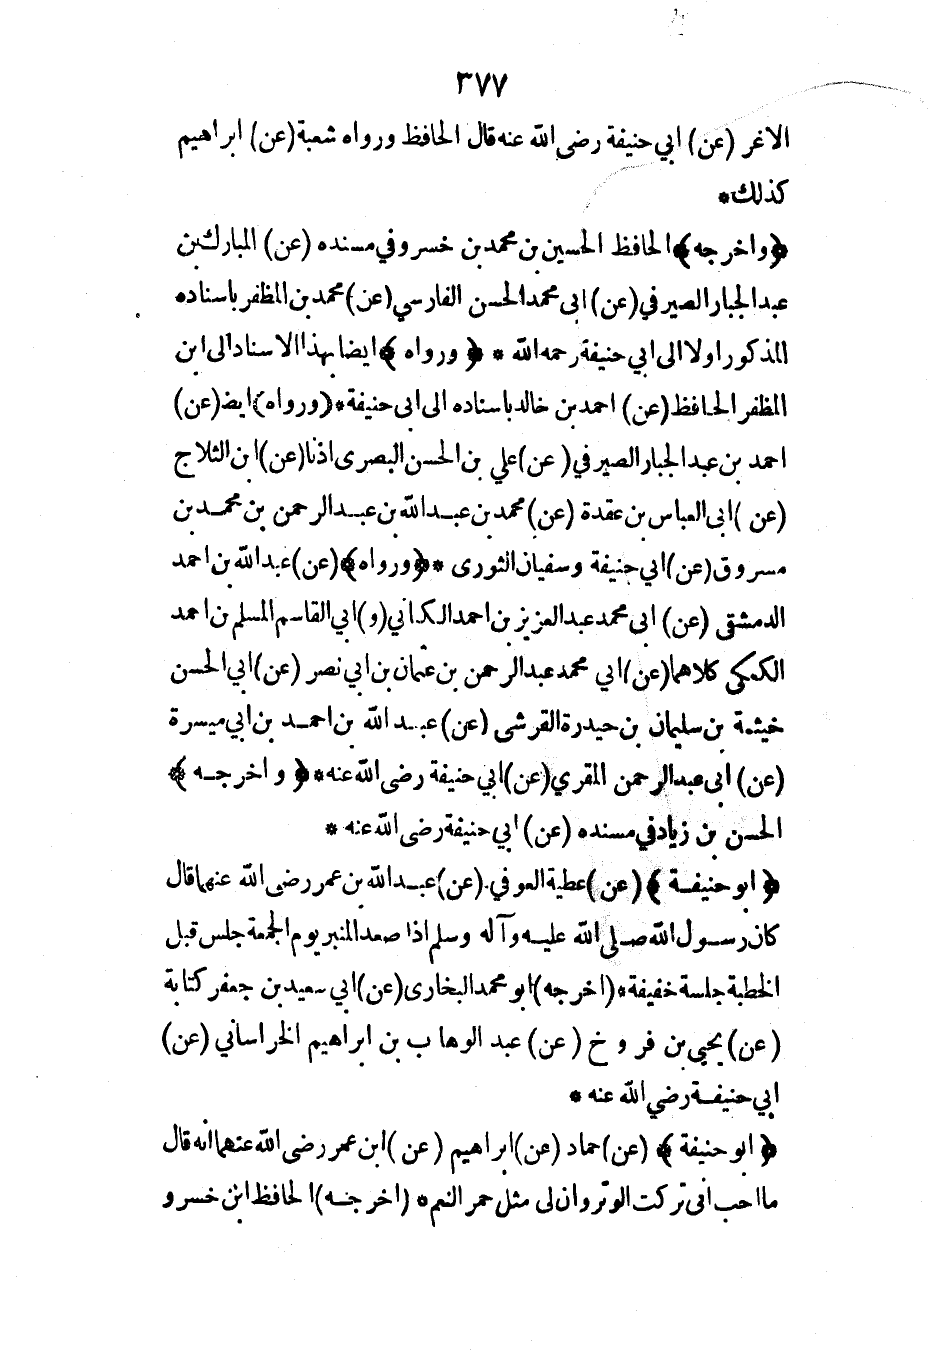 ٣٧٧
الاغر (عن) ابي حنيفة رضى الله عنه قال الحافظ ورواه شعبة (عن) ابراهيم
كذلك *
﴿واخرجه﴾ الحافظ الحسين بن محمد بن خسرو في مسنده (عن) المبارك بن
عبد الجبار الصير في (عن) ابى محمد الحسن الفارسي (عن) محمد بن المظفر باسناده
المذكور اولا الى ابي حنيفة رحمه الله * ﴿ ورواه ﴾ ايضا بهذا الاسناد الى ابن
المظفر الحافظ (عن) احمد بن خالد باسناده الى ابى حنيفة * (ورواه) ايضا (عن)
احمد بن عبد الجبار الصير في (عن) علي بن الحسن البصرى اذنا (عن) ابن الثلاج
(عن) ابى العباس بن عقدة (عن) محمد بن عبد الله بن عبد الرحمن بن محمد بن
مسروق (عن) ابي حنيفة وسفيان الثورى * ﴿ورواه﴾ (عن) عبد الله بن احمد
الدمشقى (عن) ابى محمد عبد العزيز بن احمد الكتاني (و) ابي القاسم المسلم بن احمد
الكعكي كلاهما (عن) ابي محمد عبد الرحمن بن عثمان بن ابي نصر (عن) ابي الحسن
خيثمة بن سليمان بن حيدرة القرشى (عن) عبد الله بن احمد بن ابي ميسرة
(عن) ابى عبد الرحمن المقري (عن) ابي حنيفة رضى الله عنه * ﴿ و اخرجه ﴾
الحسن بن زياد في مسنده (عن) ابي حنيفة رضى الله عنه *
﴿ ابو حنيفة ﴾ (عن) عطية العو في (عن) عبد الله بن عمر رضى الله عنهما قال
كان رسول الله صلى الله عليه وآله وسلم اذا صعد المنبر يوم الجمعة جلس قبل
الخطبة جلسة خفيفة * (اخرجه) ابو محمد البخارى (عن) ابي سعيد بن جعفر كتابة
(عن) يحيى بن فروخ (عن) عبد الوهاب بن ابراهيم الخراساني (عن)
ابي حنيفة رضي الله عنه *
﴿ ابو حنيفة ﴾ (عن) حماد (عن) ابراهيم (عن) ابن عمر رضى الله عنهما انه قال
ما احب انى تركت الوتر وان لى مثل حمر النعم * (اخرجه) الحافظ ابن خسرو